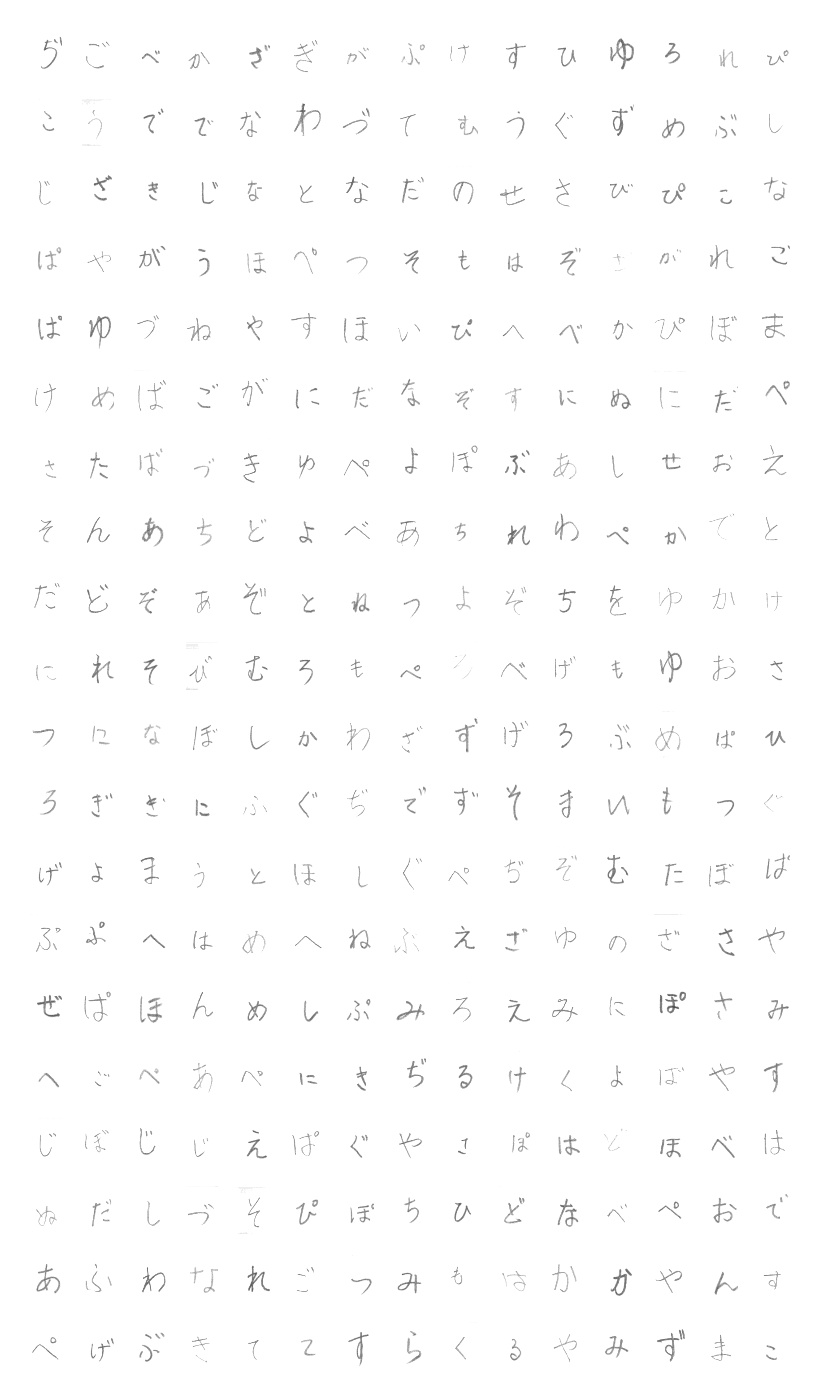 ぢごべかざぎがぷけすひゆろれぴ
こうででなわづてむうぐずめぶし
じざきじなとなだのせさびぴこな
ぱやがうほぺつそもはぞさがれご
ぱゆづねやすほいぴへべかぴぼま
けめばごがにだなぞすにぬにだぺ
さたばづきゆぺよぽぶあしせおえ
そんあちどよべあちれわぺかでと
だどぞあぞとねつよぞちをゆかけ
にれそびむろもぺろべげもゆおさ
つになぼしかわざずげろぶめぱひ
ろぎぎにふぐぢでずそまいもつぐ
げよまうとほしぐぺぢぞむたぼば
ぷぷへはめへねぶえざゆのざさや
ぜぱほんめしぷみろえみにぽさみ
へごぺあぺにきぢるけくよばやす
じぼじじえぱぐやさぽはどほべは
ぬだしづそぴぽちひどなべぺおで
あふわなれごつみもはかかやんす
ぺげぶきててすらくるやみずまこ